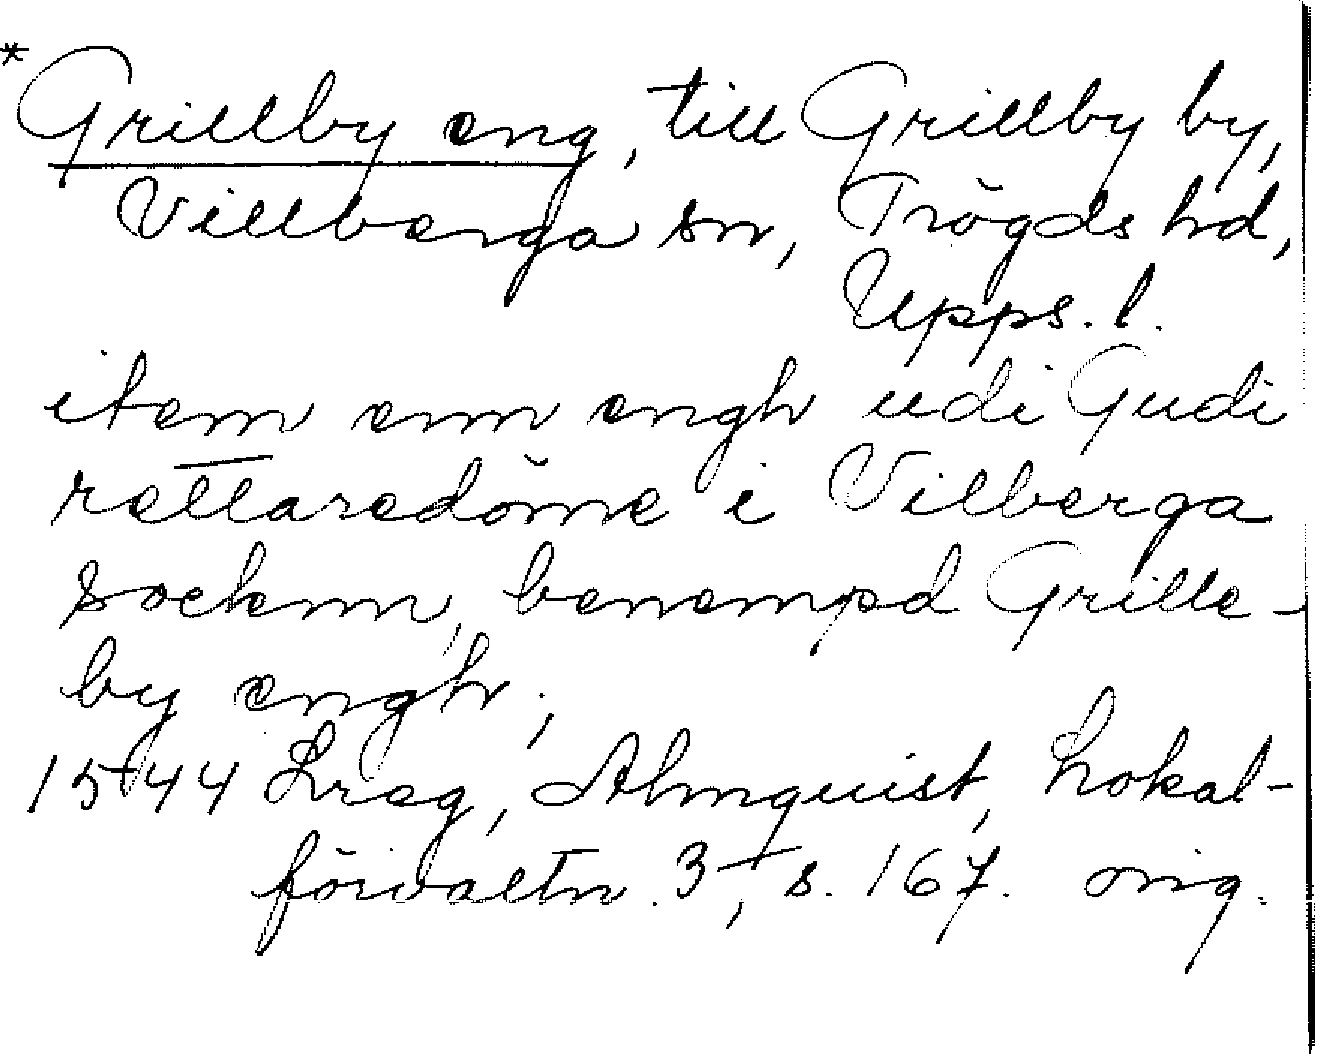 *Grillby eng, till Grillby by,
Villberga sn, Trögds hd,
Upps. l.
item enn engh udi Gudi
rettaredöme i Vilberga
sockenn, benempd Grille-
by engh;
1544 Lreg, Almquist, Lokal-
förvaltn. 3, s. 167. orig.